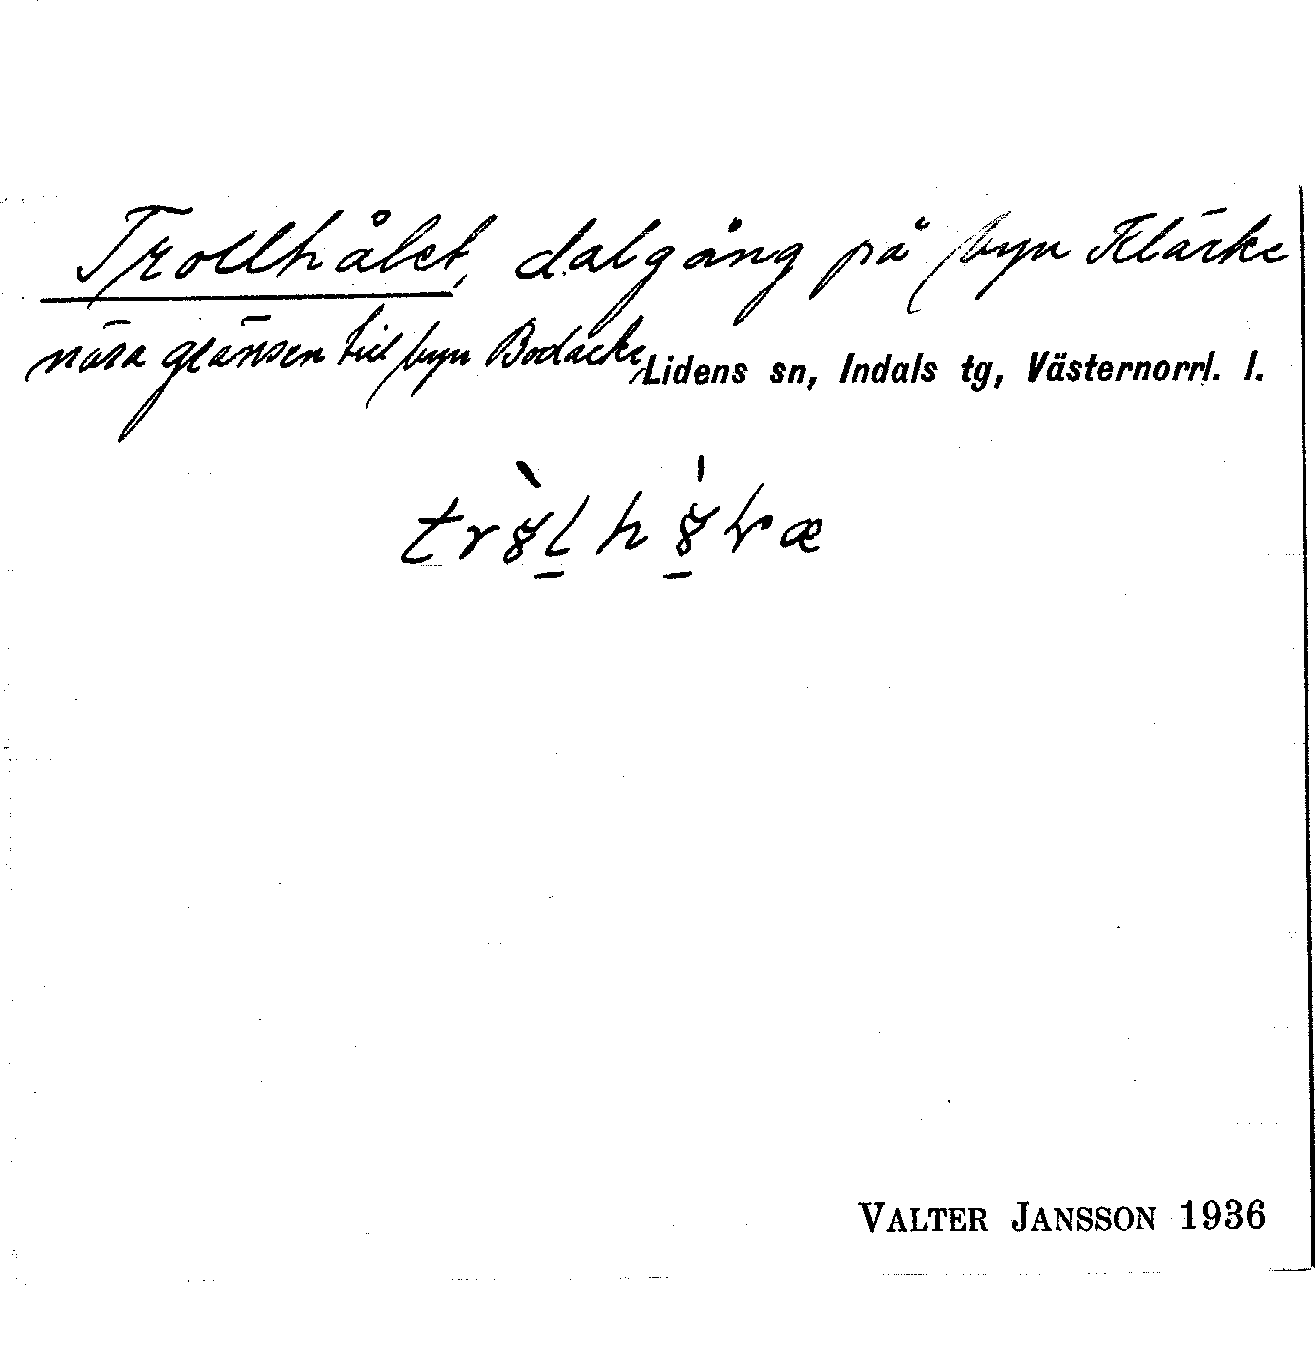 Trollhålet, dalgång på byn Klärke
nära gränsen till byn Bodacke
Lidens sn, Indals tg, Västernorrl. l.
VALTER JANSSON 1936